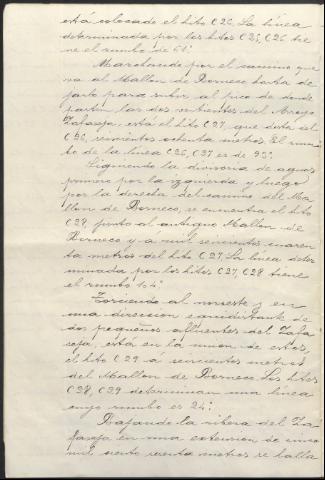 está colocado el hito C 26. La línea
determinada por los hitos C 25, C 26 tie-
ne el rumbo de 61º.
Marchando por el camino que
va al Mallon de Borneco hasta de-
jarlo para subir al pico de donde
parten las dos vertientes del Arroyo
está el hito C 27, que dista del
C 26, seiscientos ochenta metros. El rum-
bo de la línea C 26, C 27 es de 95º.
Siguiendo la divisoria de aguas
primero por la izquierda y luego
por la derecha del camino del Ma-
llon de Borneco, se encuentra el hito
C 28, junto al antiguo Mallon de
Borneco y a mil seiscientos cuaren-
ta metros del hito C 27. La línea deter-
minada por los hitos C 27, C 28 tiene
el rumbo 14º.
Torciendo al noroeste y en
una dirección equidistante de
dos pequeños afluentes del
está en la unión de estos,
el hito C 29 á seiscientos metros
del Mallon de Borneco. Los hitos
C 28, C 29 determinan una línea
cuyo rumbo es 24º.
Bajando la ribera del
en una extensión de cinco
mil ciento metros se halla